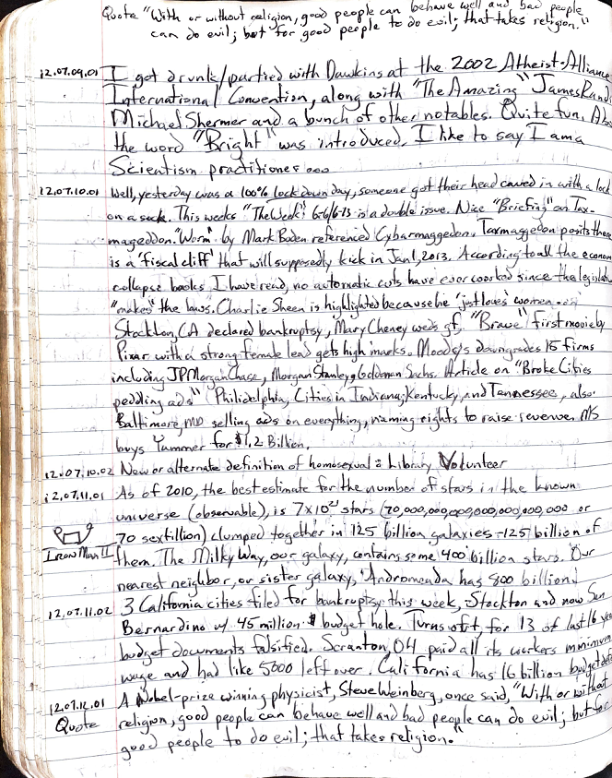 Quote "With or without religion, good people can behave well and bad people
can do evil; but for good people to do evil; that takes religion."
12.07.09.01 I got drunk/partied with Dawkins at the 2002 Atheist Alliance
International Convention, along with "The Amazing" James Randi
Michael Shermer and a bunch of other notables. Quite fun. Also
the word "Bright" was introduced. I like to say I am a
Scientism practitioner...
12.07.10.01 Well, yesterday was a 100% lockdown day, someone got their head caved in with a lock
on a sock. This weeks "The Week" 6-6/6-13 is a double issue. Nice "Briefing" on Tax-
mageddon. "Worm" by Mark Boden referenced Cybarmaggedon. Taxmaggedon posits there
is a "fiscal cliff" that will supposedly kick in Jan 1, 2013. According to all the econom
collapse books I have read, no automatic cuts have ever worked since the legisla
"makes" the laws. Charlie Sheen is highlighted because he "just loves" women...
Stockton, CA declared bankruptsy, Mary Cheney weds gf, "Brave" first movie by
Pixar with a strong female lead gets high marks. Moody's downgrades 15 firms
including JP Morgan Chase, Morgan Stanley, Goldman Sachs. Article on "Broke Cities
pedding ads" Philidelphia, Cities in Indiana, Kentucky, and Tennessee, also
Baltimore, MD selling ads on everything, naming rights to raise revenue. MS
buys Yammer for $1.2 Billion.
12.07.10.02 New or alternate definition of homosexual = Library Volunteer
12.07.11.01 As of 2010, the best estimate for the number of stars in the known
universe (observable), is 7x10²² stars (70,000,000,000,000,000,000,000 or
70 sextillion) clumped together in 125 billion galaxies - 125 billion of
Iron Man II them. The Milky Way, our galaxy, contains some 400 billion stars. Our
nearest neighbor, or sister galaxy, Andromeda has 800 billion!
12.07.11.02 3 California cities filed for bankruptsy this week, Stockton and now San
Bernardino w/ 45 million $ budget hole. Turns oft for 13 of last 16 year
budget documents falsified. Scranton, OH paid all its workers minimum
wage and had like 5000 left over. California has 16 billion budget
12.07.12.01 A Nobel-prize winning physicist, Steve Weinberg, once said, "With or without
Quote religion, good people can behave well and bad people can do evil; but for
good people to do evil; that takes religion."